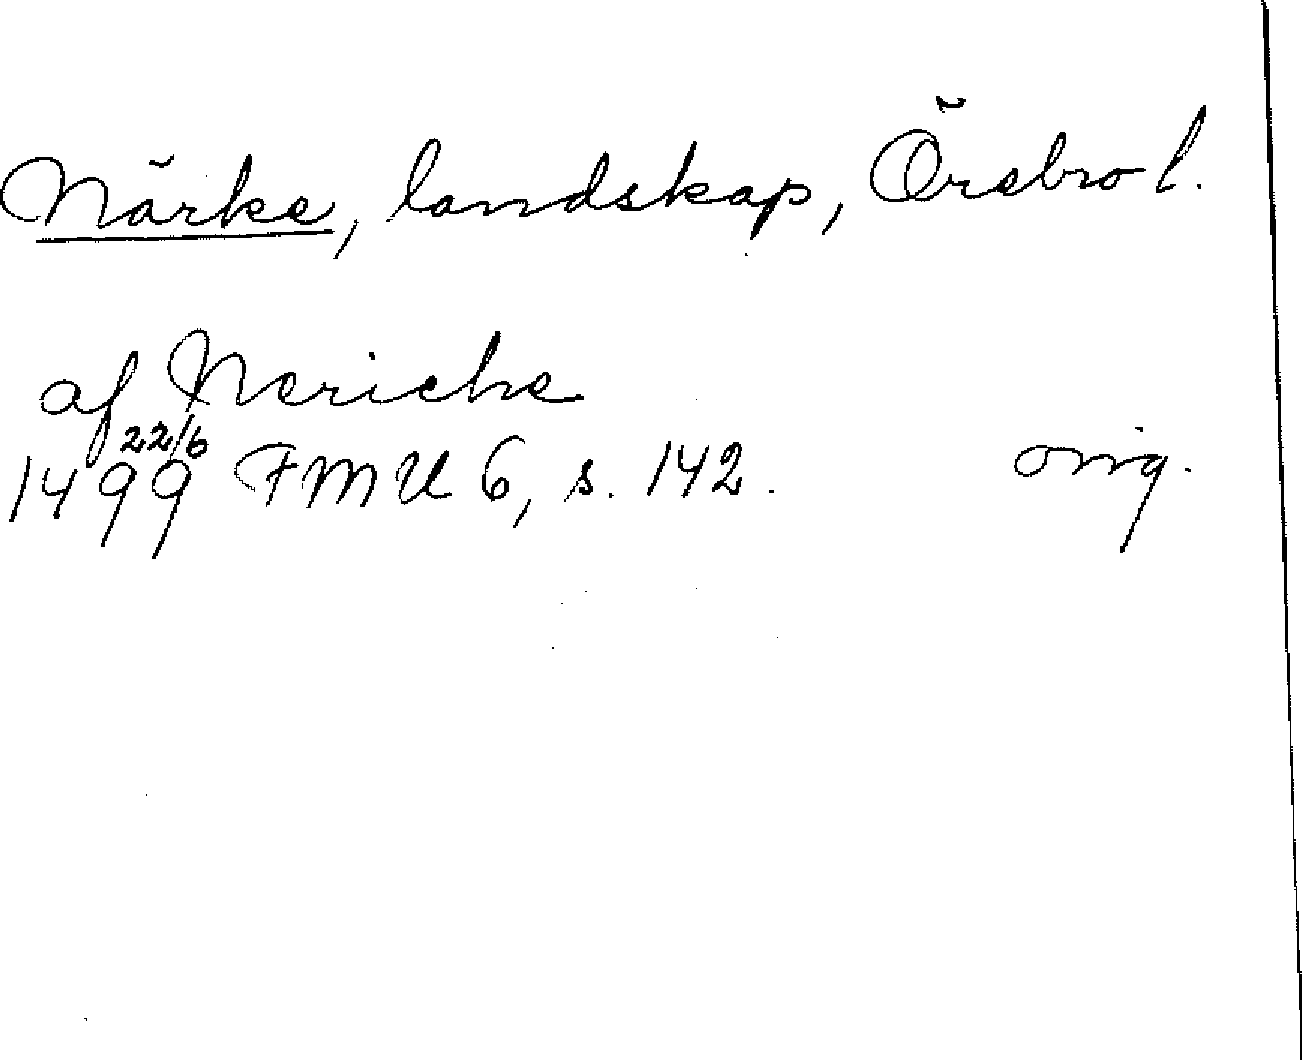 Närke, landskap, Örebro l.
af Neriche
1499 22/6 FMU 6, s. 142. orig.